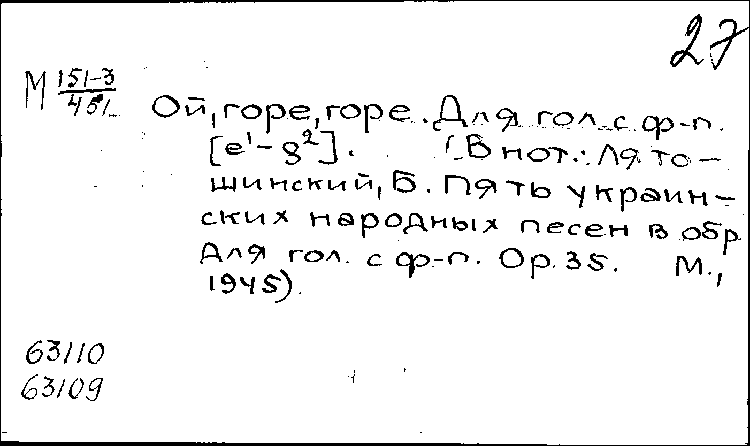 27
М 151-3
451
Ой, горе, горе. Для гол. с ф-п.
[e¹ – g²]. (В нот.: Лято-
шинский, Б. Пять украин-
ских народных песен в обр
для гол. с ф-п. Ор. 35. М.,
1945).
63110
63109